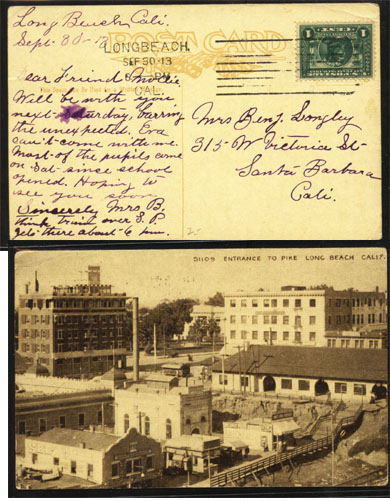 Long Beach, Cali.
Sept- 30-13
POST CARD
LONGBEACH,
SEP 30-13
CAL
1
Dear Friend Mollie
Will be with you
next Saturday, barring
the unexpected. Eva
can't come with me.
Most of the pupils came
on Sat- since school
opened. Hoping to
see you soon
Sincerely Mrs. B.
think train over S. P.
gets there about 6 p.m.
Mrs Benj. Longley
315- W Victoria St-
Santa Barbara
Cali.
31109 ENTRANCE TO PIKE LONG BEACH CALIF.